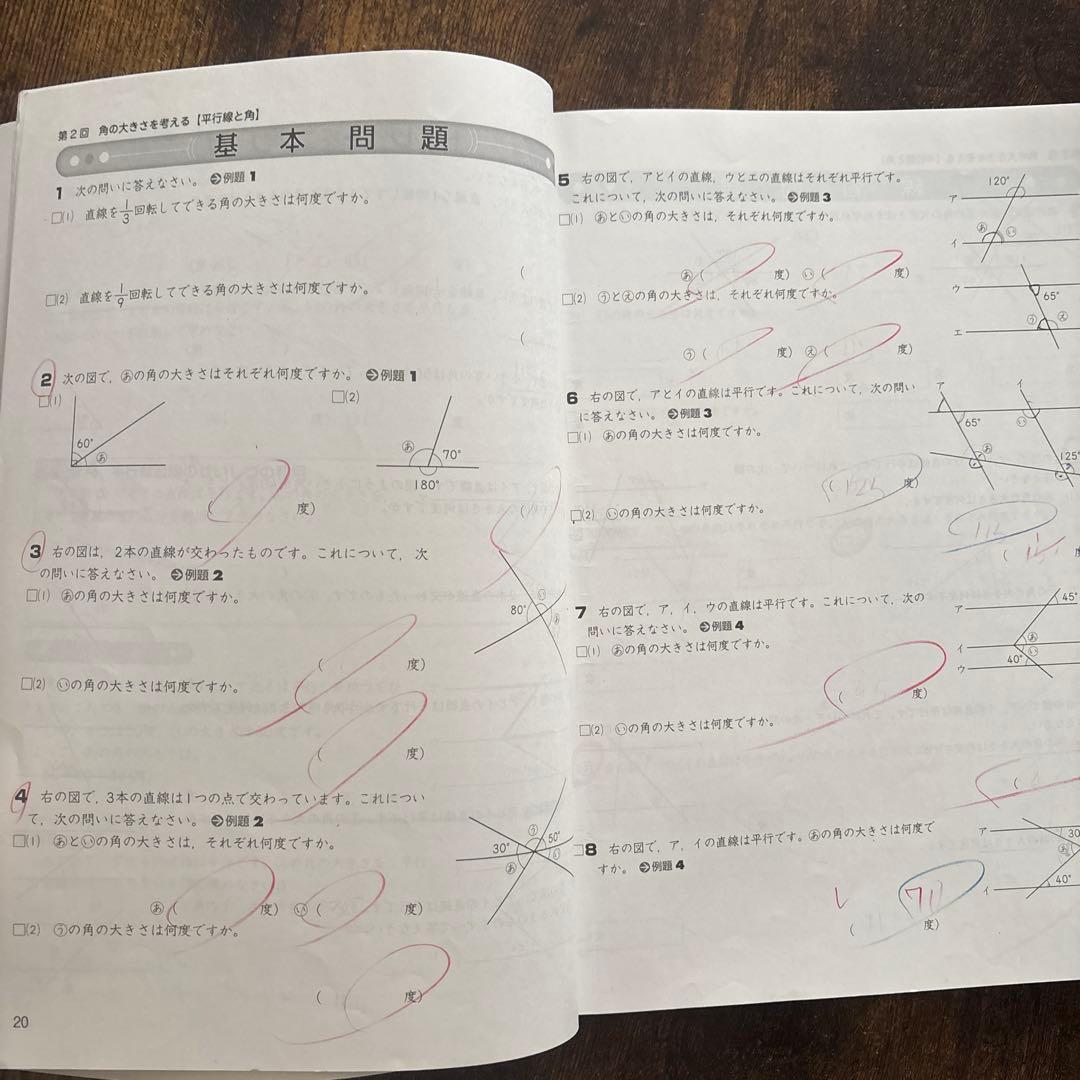 第2回 角の大きさを考える【平行線と角】
基本問題
1 次の問いに答えなさい。 例題1
□(1) 直線を1/3回転してできる角の大きさは何度ですか。
(
□(2) 直線を1/9回転してできる角の大きさは何度ですか。
(
2 次の図で，あの角の大きさはそれぞれ何度ですか。 例題1
□(1)
60°
あ
度)
□(2)
あ
70°
180°
(
3 右の図は，2本の直線が交わったものです。これについて，次
の問いに答えなさい。 例題2
□(1) あの角の大きさは何度ですか。
80°
い
あ
( 度)
□(2) いの角の大きさは何度ですか。
( 度)
4 右の図で，3本の直線は1つの点で交わっています。これについ
て，次の問いに答えなさい。 例題2
□(1) あといの角の大きさは，それぞれ何度ですか。
う
50°
30°
い
あ
あ( 度) い( 度)
□(2) うの角の大きさは何度ですか。
( 度)
20
5 右の図で，アとイの直線，ウとエの直線はそれぞれ平行です。
これについて，次の問いに答えなさい。 例題3
□(1) あといの角の大きさは，それぞれ何度ですか。
120°
ア
あ
い
イ
あ( 度) い( 度)
□(2) うとえの角の大きさは，それぞれ何度ですか。
ウ
65°
う
え
エ
う( 度) え( 度)
6 右の図で，アとイの直線は平行です。これについて，次の問い
に答えなさい。 例題3
□(1) あの角の大きさは何度ですか。
ア
イ
65°
い
あ
125°
( 度)
□(2) いの角の大きさは何度ですか。
(
7 右の図で，ア，イ，ウの直線は平行です。これについて，次の
問いに答えなさい。 例題4
□(1) あの角の大きさは何度ですか。
45°
ア
あ
イ
い
40°
ウ
( 度)
□(2) いの角の大きさは何度ですか。
(
□8 右の図で，ア，イの直線は平行です。あの角の大きさは何度で
すか。 例題4
ア
30
あ
40°
イ
( 度)